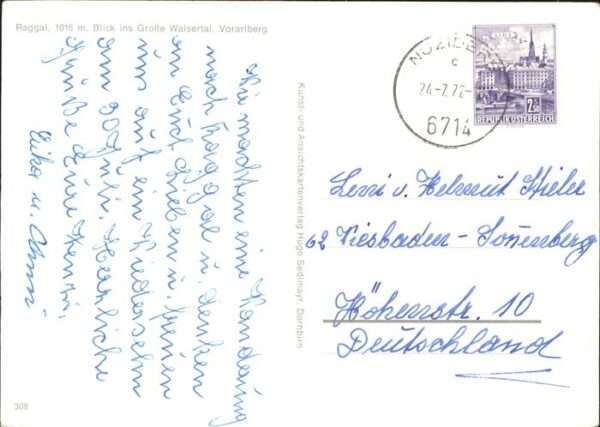 Raggal, 1016 m. Blick ins Große Walsertal, Vorarlberg
Wir machten eine Wanderung
nach Raggal u. denken
an Euch Lieben u. freuen
uns auf ein Wiedersehn
am 30 Juli. Herzliche
Grüße Eure
Erika u.
Kunst- und Ansichtskartenverlag Hugo Sedlmayr, Dornbirn
308
NÜZIDERS
c
24-7.72-
6714
2.50
REPUBLIK ÖSTERREICH
u. Helmut
62 Wiesbaden-Sonnenberg
Höhenstr. 10
Deutschland